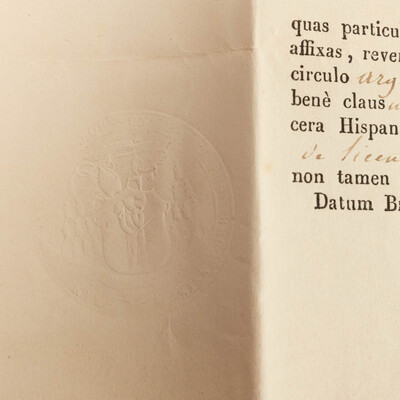 quas particu
affixas, reve
circulo arg
benè claus
cera Hispan
de licen
non tamen
Datum B